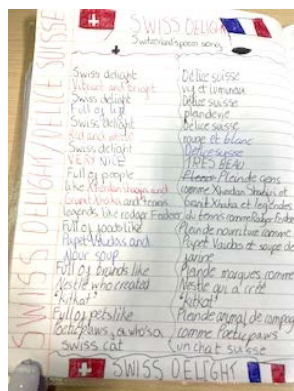 SWISS DELIGHT
Switzerland's poem song
SWISS DELIGHT/DELICE SUISSE
Swiss delight
Vibrant and bright
Swiss delight
Full of life
Swiss delight
Red and white
Swiss delight
VERY NICE
Full of people
like Xherdan Shaqiri and
Granit Xhaka and tennis
legends like rodger Federer
Full of foods like
Papet Vaudois and
flour soup
Full of brands like
Nestle who created
"kitkat"
Full of pets like
Poeticpaws, a who's a
swiss cat
Délice suisse
vif et lumineux
Délice suisse
plein de vie
Délice suisse
rouge et blanc
Délice suisse
TRES BEAU
Plein de gens
comme Xherdan Shaqiri et
Granit Xhaka et legendes
du tennis comme Rodger Federer
Plein de nourriture comme
Papet Vaudois et soupe de
farine
Plein de marques comme
Nestle qui a créé
"kitkat"
Plein de animal de compagn
comme Poeticpaws
un chat suisse
SWISS DELIGHT